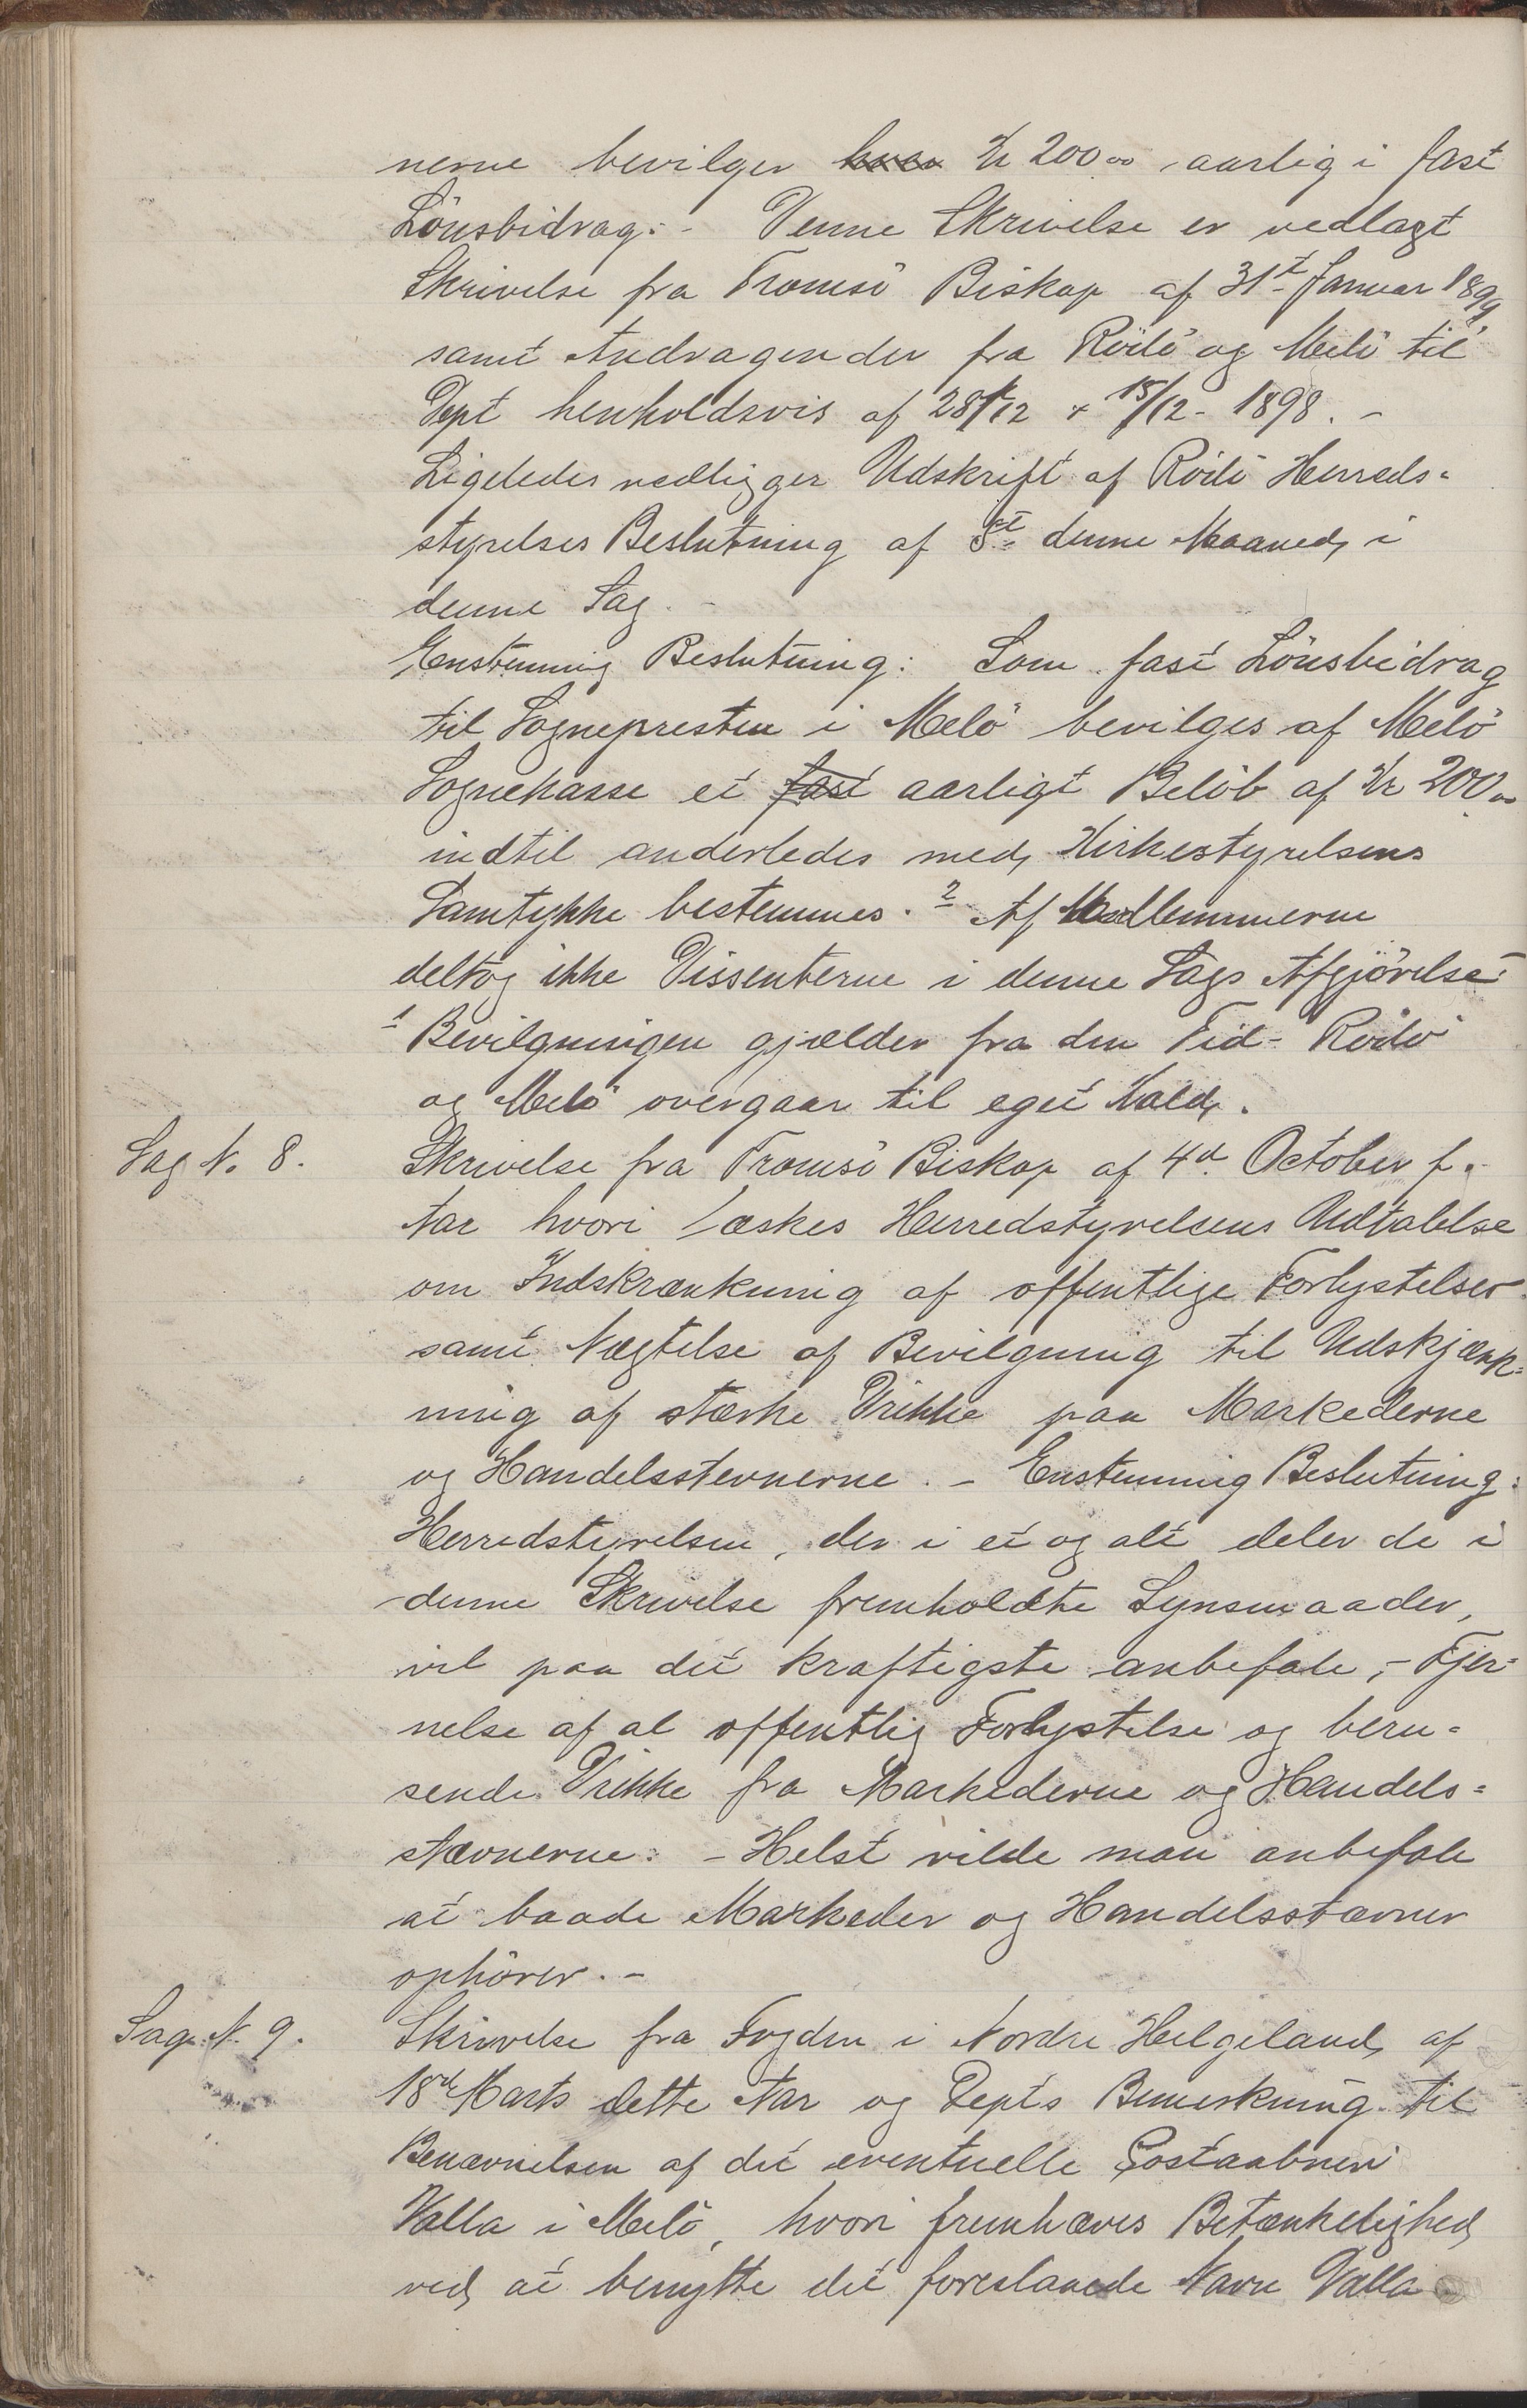 nerne bevilger hver Kr 200.00 aarlig i fast
Lönsbidrag.- Denne Skrivelse er vedlagt
Skrivelse fra Tromsö Biskop af 31te Januar 1899,
samt Andragender fra Rödö og Melö til
Dept henholdsvis af 28/12 & 15/12 - 1898. -
Ligeledes vedligger Udskrift af Rödö Herreds-
styrelses Beslutning af 8de denne Maaned, i
denne Sag. -
Enstemmig Beslutning: Som fast Lönsbidrag
til Sognepresten i Melö bevilges af Melö
Sognekasse et fast aarligt Belöb af Kr 200.00
indtil anderledes med Kirkestyrelsens
Samtykke bestemmes. 2 Af Medlemmerne
deltog ikke Dissenterne i denne Sags Afgjörelse -
1 Bevilgningen gjælder fra den Tid - Rödö
og Melö overgaar til eget Kald.
Sag N. 8. Skrivelse fra Tromsö Biskop af 4de October f.
Aar hvori æskes Herredstyrelsens Udtalelse
om Indskrænkning af offentlige Forlystelser
samt Nægtelse af Bevilgning til Udskjænk-
ning af stærke Drikke paa Markederne
og Handelsstevnerne. - Enstemmig Beslutning:
Herredstyrelsen, der i et og alt deler de i
denne Skrivelse fremholdte Synsmaader,
vil paa det kraftigste anbefale, - Fjer-
nelse af al offentlig Forlystelse og beru-
sende Drikke fra Markederne og Handels-
stævnerne. - Helst vilde man anbefale
at baade Markeder og Handelsstævner
ophörer. -
Sag N. 9. Skrivelse fra Fogden i Nordre Helgeland, af
18de Marts dette Aar og Depts Bemerkning til
Benævnelsen af det eventuelle Postaabneri
Valla i Melö, hvori fremhæves Betænkelighed
ved at benytte det foreslaaede Navn Valla